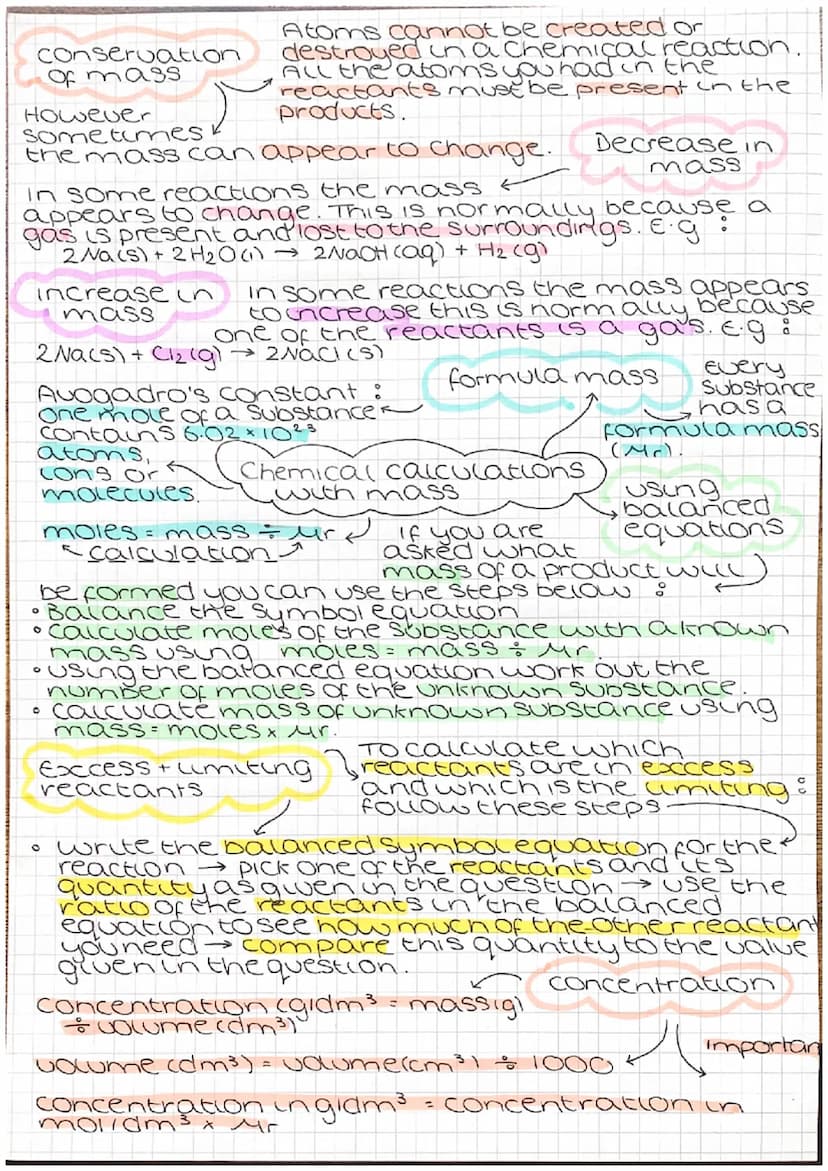 Conservation
of mass
Atoms cannot be created or
destroyed in a chemical reaction.
All the atoms you had in the
reactants must be present in the
products.
However
sometimes
the mass can appear to change.
Decrease in
mass
in some reactions the mass
appears to change. This is normally because a
gas is present and lost to the surroundings. E.g :
2Na(s) + 2H2O(l) → 2NaOH(aq) + H2(g)
increase in
mass
in some reactions the mass appears
to increase this is normally because
one of the reactants is a gas. E.g :
2Na(s) + Cl2(g) → 2NaCl(s)
Formula mass
every
substance
has a
formula mass
(Mr).
Avogadro's constant :
one mole of a substance
contains 6.02 × 10²³
atoms,
ions or
molecules.
Chemical calculations
with mass
using
balanced
equations
moles = mass ÷ Mr
calculation
if you are
asked what
mass of a product will
be formed you can use the steps below :
• Balance the symbol equation
• calculate moles of the substance with a known
mass using moles = mass ÷ Mr.
• using the balanced equation work out the
number of moles of the unknown substance.
• calculate mass of unknown substance using
mass = moles × Mr.
Excess + limiting
reactants
To calculate which
reactants are in excess
and which is the limiting :
follow these steps
• write the balanced symbol equation for the
reaction → pick one of the reactants and its
quantity as given in the question → use the
ratio of the reactants in the balanced
equation to see how much of the other reactant
you need → compare this quantity to the value
given in the question.
concentration
concentration (g/dm³ = mass(g)
÷ volume (dm³)
importan
volume (dm³) = volume(cm³) ÷ 1000
concentration in g/dm³ = concentration in
mol/dm³ × Mr